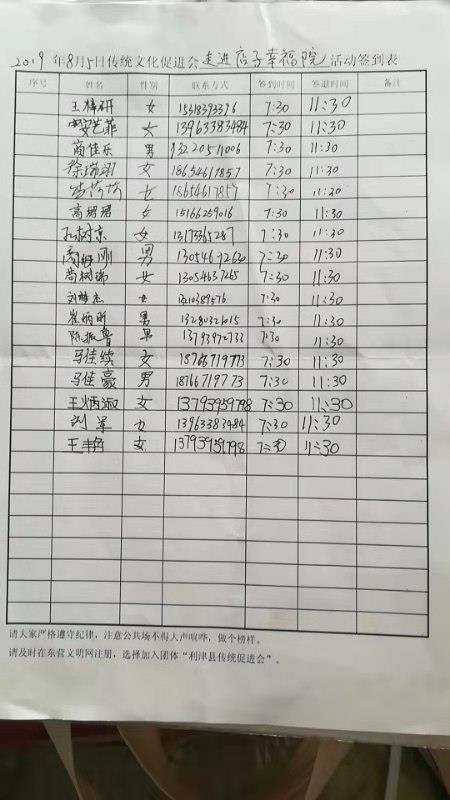 2019年8月5日传统文化促进会走进店子幸福院活动签到表
序号 姓名 性别 联系方式 签到时间 签退时间 备注
王梓研 女 15318393396 7:30 11:30
安艺菲 女 13963383484 7:30 11:30
商佳乐 男 13220511006 7:30 11:30
徐瑞翊 女 18654617857 7:30 11:30
女 18654617857 7:30 11:30
高珺珺 女 15166259016 7:30 11:30
孙树京 女 13173365287 7:30 11:30
男 7:30 11:30
尚树瑞 女 13054637265 7:30 11:30
刘梦杰 女 7:30 11:30
崔炳昕 男 13280321015 7:30 11:30
陈振鲁 男 13793972733 7:30 11:30
马佳续 女 18766719773 7:30 11:30
马佳豪 男 18766719773 7:30 11:30
王炳淑 女 13793959798 7:30 11:30
刘军 13963383484 7:30 11:30
王 女 13793959798 7:30 11:30
请大家严格遵守纪律，注意公共场不得大声喧哗，做个榜样。
请及时在东营文明网注册，选择加入团体“利津县传统促进会”。